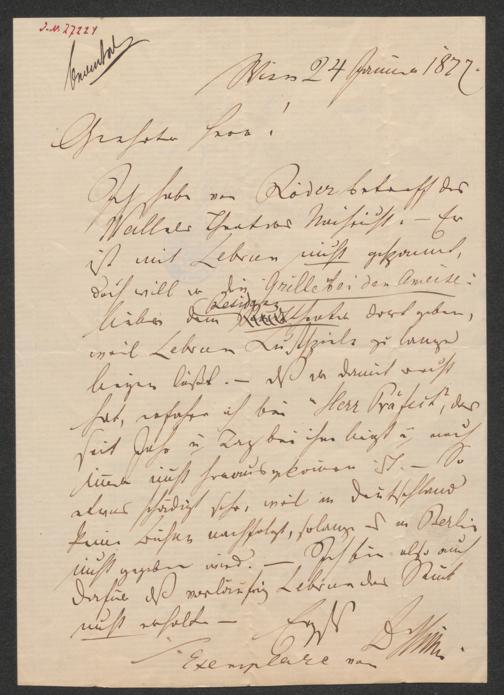 J.N. 27224
Wien 24 Januar 1877.
Geehrter Herr!
Ich habe von Röder betreff des
Wallner Theaters Nachricht. – Er
ist mit Lebrun nicht gespannt,
doch will er die Grille bei den Ameise
lieber dem Residenz theater dort geben,
weil Lebrun Lustspiele zu lange
liegen läßt. – daß er damit recht
hat, erfahre ich bei "Herr Präfect", der
seit Jahr u Tag bei ihm liegt u noch
immer nicht herausgekommen ist. – So
etwas schädigt sehr, weil in Deutschland
keine Bühne nachfolgt, solange es in Berlin
nicht gegeben wird. – Ich bin also auch
dafür daß vorläufig Lebrun das Stück
nicht erhalte –
Exemplare von